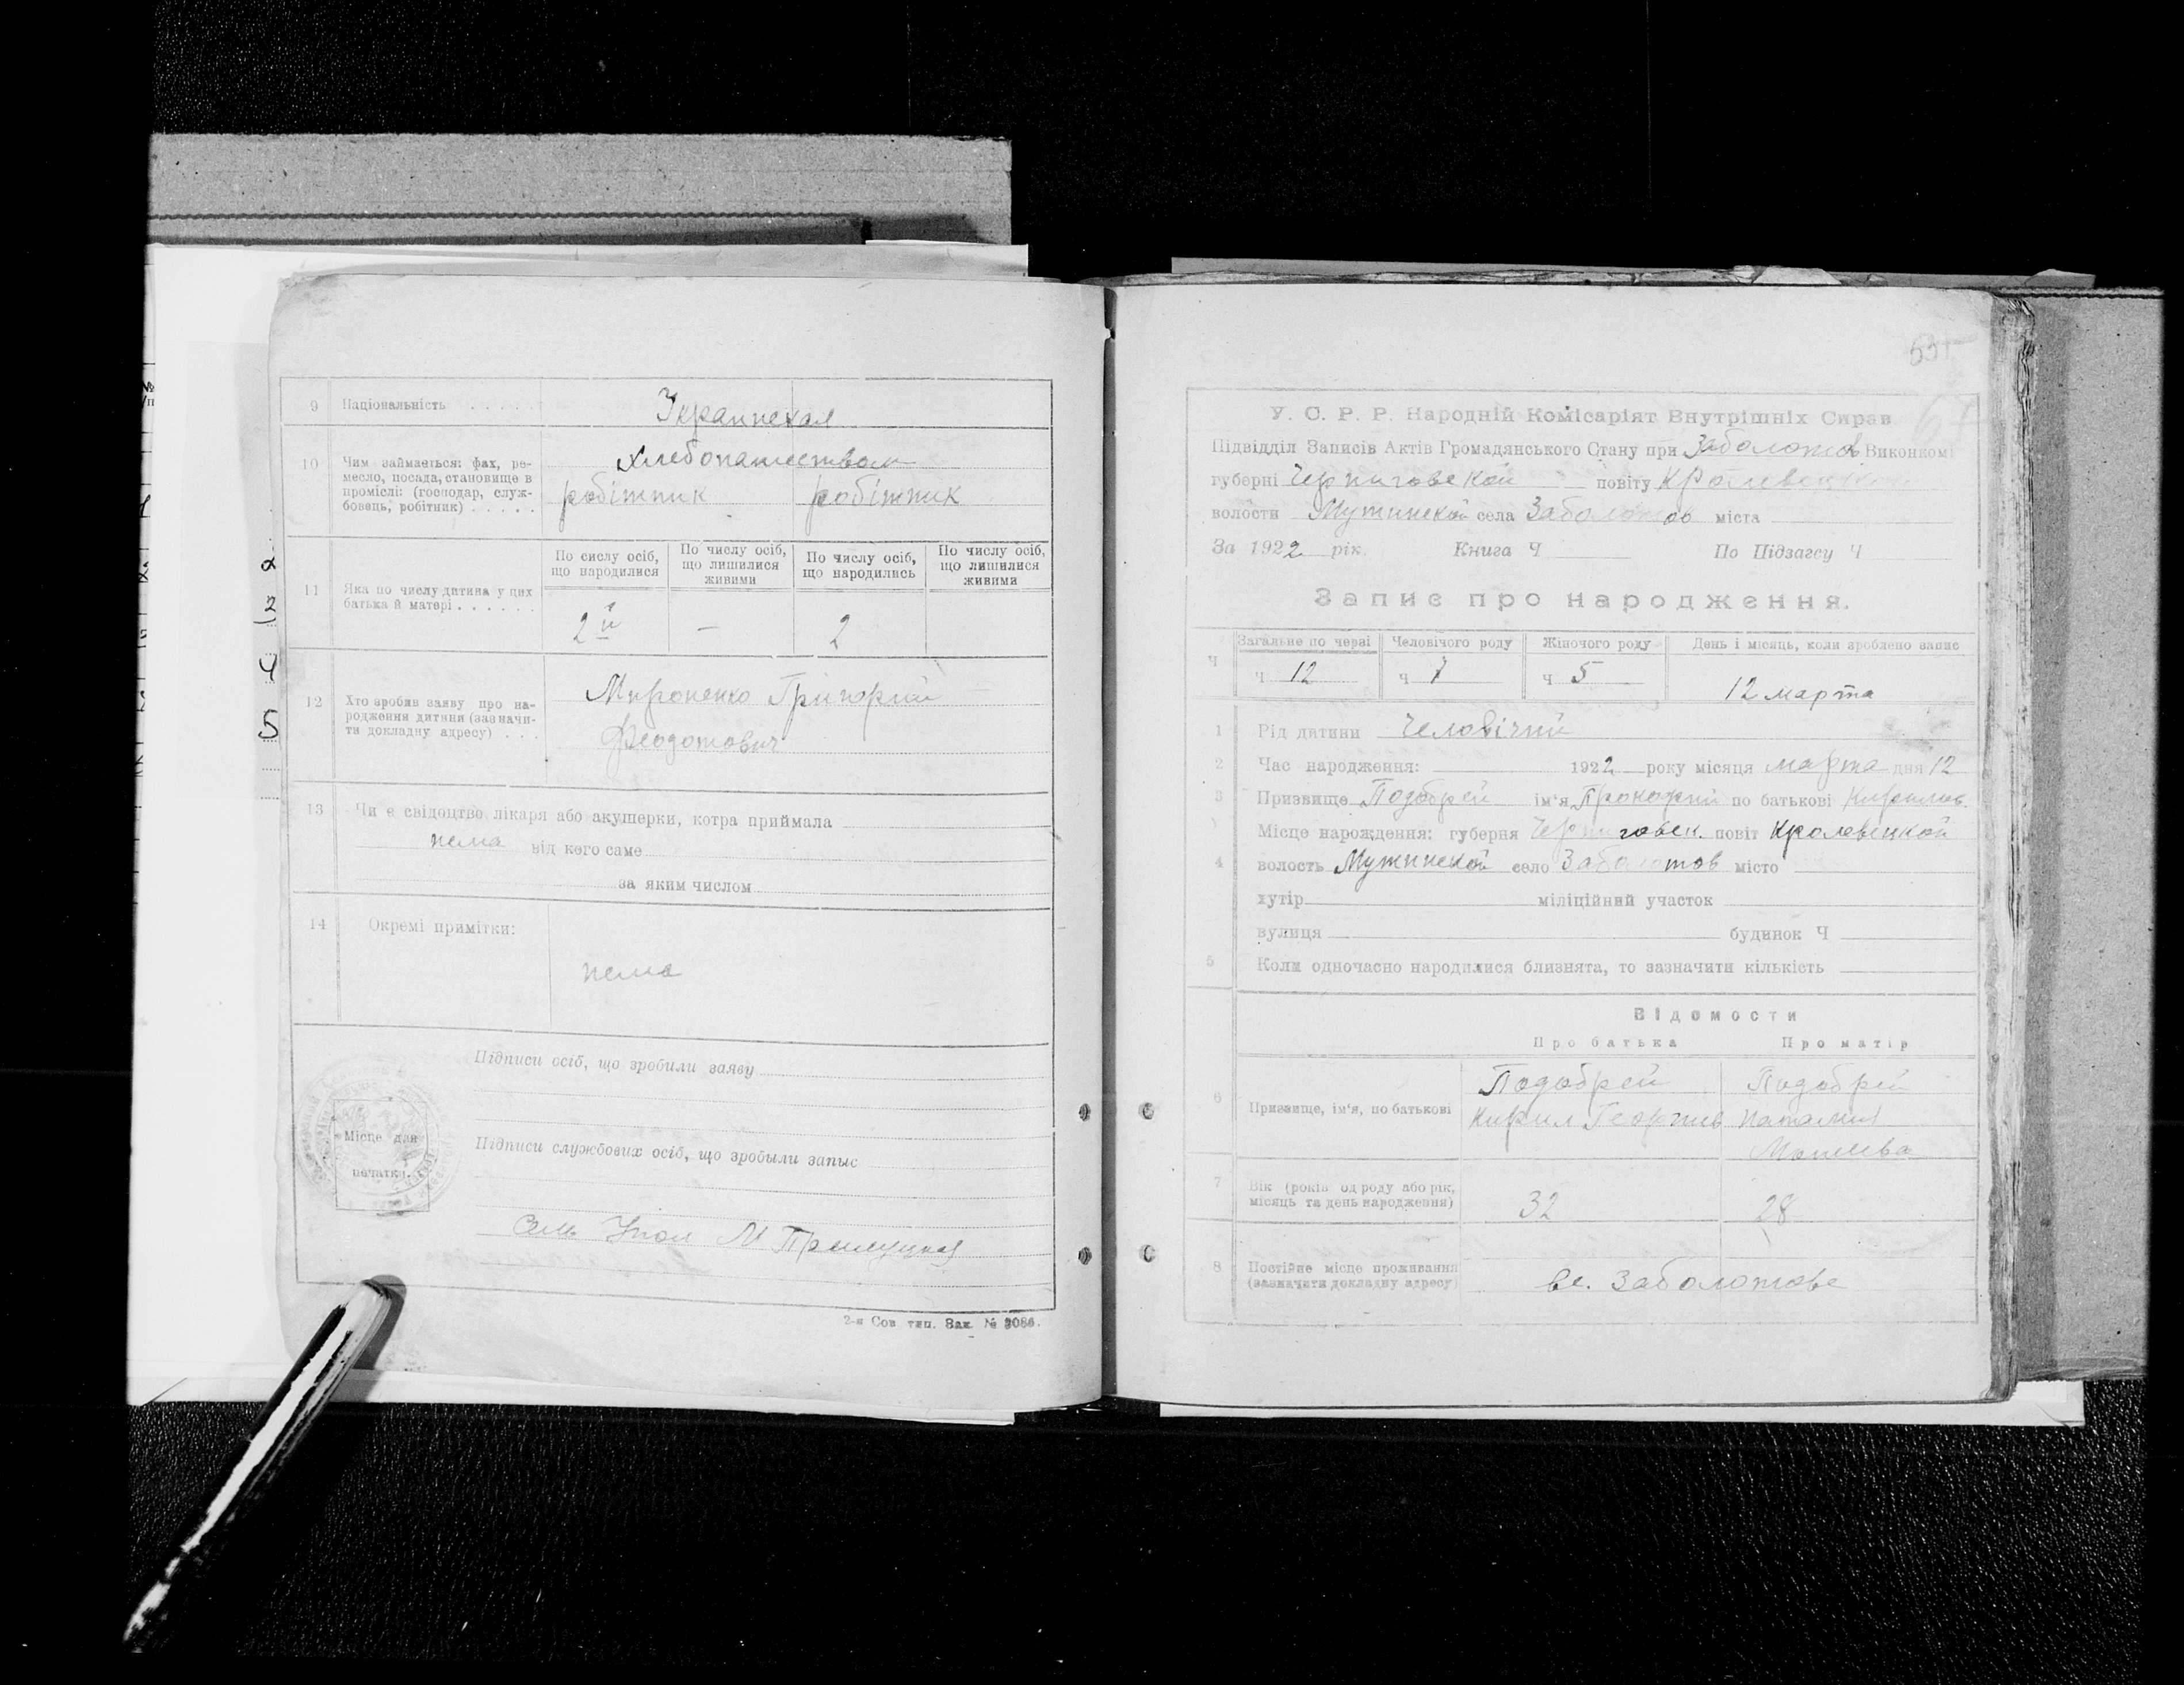 9 Національність . . . . . Украинская
10 Чим займається: фах, ремесло, посада, становище в проміслі: (господар, службовець, робітник) . . . . .
хлебопашеством
робітник робітник
11 Яка по числу дитина у цих батька й матері . . . . . .
По сислу осіб, що народилися
По числу осіб, що лишилися живими
По числу осіб, що народились
По числу осіб, що лишилися живими
2й — 2
12 Хто зробив заяву про народження дитини (зазначити докладну адресу) . . .
Мироненко Григорий
Феодотович
13 Чи є свідоцтво лікаря або акушерки, котра приймала
нема від кого саме
за яким числом
14 Окремі примітки:
нема
Підписи осіб, що зробили заяву
Місце для печатки.
Підписи службових осіб, що зробыли запыс
2-я Сов. тип. Зак. № 3086.
2
12
4
5
У. С. Р. Р. Народній Комісаріят Внутрішніх Справ
Підвідділ Записів Актів Громадянського Стану при Заболотов Виконкомі
губерні Черниговской повіту Кролевецкой
волости Мутинской села Заболотов міста
За 1922 рік. Книга Ч По Підзагсу Ч
Запис про народження.
Ч Загальне по черзі Человічого роду Жіночого роду День і місяць, коли зроблено запис
ч 12 ч 7 ч 5 12 марта
1 Рід датини Человічий
2 Час народження: 1922 року місяця марта дня 12
3 Призвище Подобрей ім'я Прокофий по батькові Кирилов.
Місце народження: губерня Черниговск. повіт Кролевецкой
4 волость Мутинской село Заболотов місто
хутір міліційний участок
вулиця будинок Ч
5 Коли одночасно народилися близнята, то зазначити кількість
Відомости
Про батька Про матір
6 Призвище, ім'я, по батькові
Подобрей Подобрей
Кирил Георгиев Наталия
7 Вік (років од роду або рік, місяць та день народження) 32 28
8 Постійне місце проживання (зазначити докладну адресу) вс. Заболотове